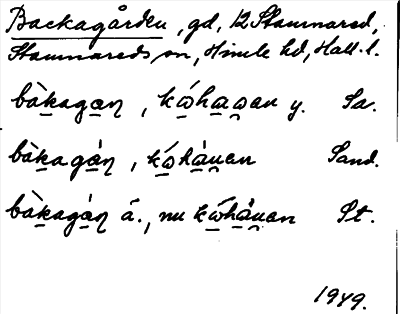 Backagården, gd, 12 Stamnared,
Stamnareds sn, Himle hd, Hall. l.
bàkagan, kóhagan y. Sa.
bàkagán, kóhàuan Sand.
bàkagán ä., nu kóhàuan St.
1949.